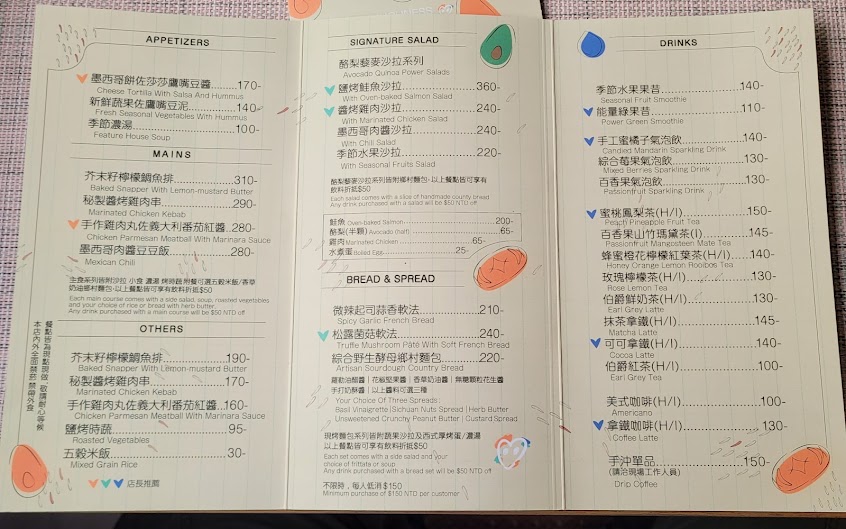 APPETIZERS
墨西哥餅佐莎莎鷹嘴豆醬 170-
Cheese Tortilla With Salsa And Hummus
新鮮蔬果佐鷹嘴豆泥 140-
Fresh Seasonal Vegetables With Hummus
季節濃湯 100-
Feature House Soup
MAINS
芥末籽檸檬鯛魚排 310-
Baked Snapper With Lemon-mustard Butter
秘製醬烤雞肉串 290-
Marinated Chicken Kebab
手作雞肉丸佐義大利番茄紅醬 280-
Chicken Parmesan Meatball With Marinara Sauce
墨西哥肉醬豆豆飯 280-
Mexican Chili
主食系列皆附沙拉 小食 濃湯 烤時蔬 附餐可選五穀米飯/香草
奶油鄉村麵包·以上餐點皆可享有飲料折抵$50
Each main course comes with a side salad, soup, roasted vegetables
and your choice of rice or bread with herb butter.
Any drink purchased with a main will be $50 NTD off
OTHERS
芥末籽檸檬鯛魚排 190-
Baked Snapper With Lemon-mustard Butter
秘製醬烤雞肉串 170-
Marinated Chicken Kebab
手作雞肉丸佐義大利番茄紅醬 160-
Chicken Parmesan Meatball With Marinara Sauce
鹽烤時蔬 95-
Roasted Vegetables
五穀米飯 30-
Mixed Grain Rice
店長推薦
餐點皆為現點現做 敬請耐心等候
本店內外全面禁菸 禁帶外食
SIGNATURE SALAD
酪梨藜麥沙拉系列
Avocado Quinoa Power Salads
鹽烤鮭魚沙拉 360-
With Oven-baked Salmon Salad
醬烤雞肉沙拉 240-
With Marinated Chicken Salad
墨西哥肉醬沙拉 240-
With Chili Salad
季節水果沙拉 220-
With Seasonal Fruits Salad
酪梨藜麥沙拉系列皆附鄉村麵包·以上餐點皆可享有
飲料折抵$50
Each salad comes with a slice of handmade county bread
Any drink purchased with a salad will be $50 NTD off
鮭魚 Oven-baked Salmon 200-
酪梨(半顆) Avocado (half) 65-
雞肉 Marinated Chicken 65-
水煮蛋 Boiled Egg 25-
BREAD & SPREAD
微辣起司蒜香軟法 210-
Spicy Garlic French Bread
松露菌菇軟法 240-
Truffle Mushroom Pâté With Soft French Bread
綜合野生酵母鄉村麵包 220-
Artisan Sourdough Country Bread
羅勒油醋醬｜花椒堅果醬｜香草奶油醬｜無糖顆粒花生醬
手打奶酥醬｜以上醬料可選三種
Your Choice Of Three Spreads:
Basil Vinaigrette|Sichuan Nuts Spread|Herb Butter
Unsweetened Crunchy Peanut Butter|Custard Spread
現烤麵包系列皆附蔬食沙拉及西式厚烤蛋/濃湯
以上餐點皆可享有飲料折抵$50
Each set comes with a side salad and your
choice of frittata or soup
Any drink purchased with a bread set will be $50 NTD off
不限時，每人低消$150
Minimum purchase of $150 NTD per customer
DRINKS
季節水果果昔 140-
Seasonal Fruit Smoothie
能量綠果昔 110-
Power Green Smoothie
手工蜜橘子氣泡飲 140-
Candied Mandarin Sparkling Drink
綜合莓果氣泡飲 130-
Mixed Berries Sparkling Drink
百香果氣泡飲 130-
Passionfruit Sparkling Drink
蜜桃鳳梨茶(H/I) 150-
Peach Pineapple Fruit Tea
百香果山竹瑪黛茶(I) 145-
Passionfruit Mangosteen Mate Tea
蜂蜜橙花檸檬紅葉茶(H/I) 140-
Honey Orange Lemon Rooibos Tea
玫瑰檸檬茶(H/I) 130-
Rose Lemon Tea
伯爵鮮奶茶(H/I) 130-
Earl Grey Latte
抹茶拿鐵(H/I) 145-
Matcha Latte
可可拿鐵(H/I) 140-
Cocoa Latte
伯爵紅茶(H/I) 100-
Earl Grey Tea
美式咖啡(H/I) 100-
Americano
拿鐵咖啡(H/I) 130-
Coffee Latte
手沖單品 150-
(請洽現場工作人員)
Drip Coffee